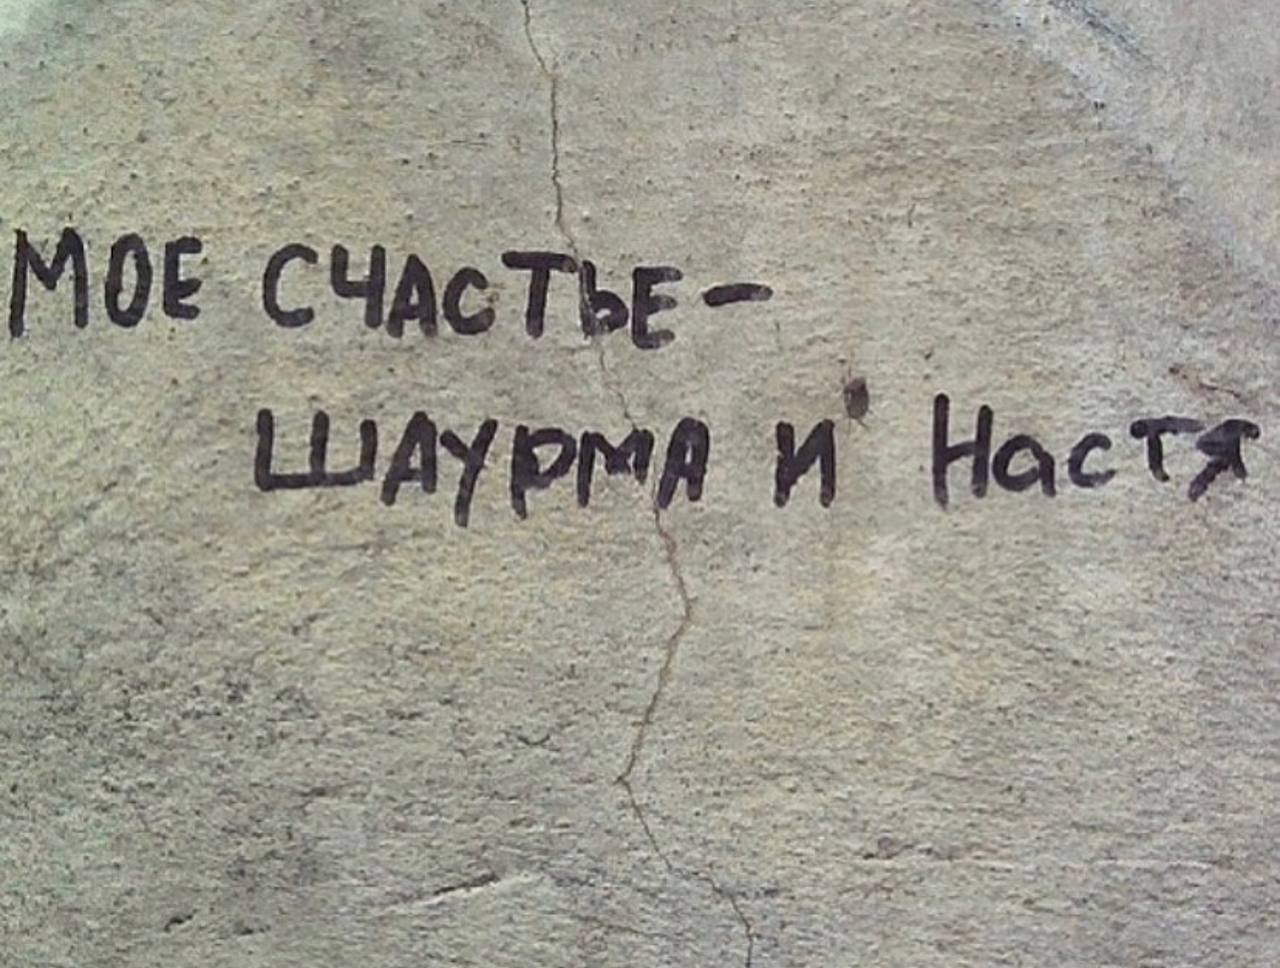 МОЕ СЧАСТЬЕ-
ШАУРМА И Настя